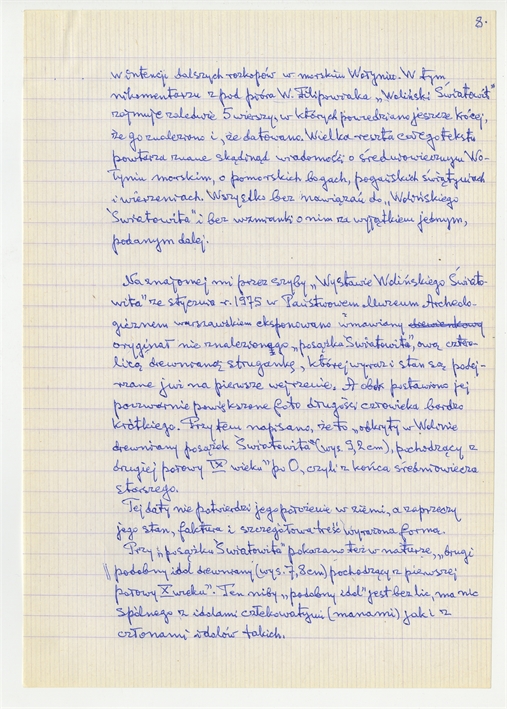 8.
w intencji dalszych rozkopów w morskim Wołyniu. W tym
nikomentarzu z pod pióra W. Filipowiaka „Woliński Światowit"
zajmuje zaledwie 5 wierszy, w których powiedziano jeszcze krócej,
że go znaleziono i, że datowano. Wielka reszta całego tekstu
powtarza znane skądinąd wiadomości o średniowiecznym Wo-
łyniu morskim, o pomorskich bogach, pogańskich świątyniach
i wierzeniach. Wszystko bez nawiązań do „Wolińskiego
Światowita" i bez wzmianki o nim za wyjątkiem jednym,
podanym dalej.
Na znajomej mi przez szyby „Wystawie Wolińskiego Świato-
wita" ze stycznia r. 1975 w Państwowem Muzeum Archeolo-
gicznem warszawskiem eksponowano wmawiany drewienkowy
oryginał nie znalezionego „posążka Światowita", ową cztero-
licą drewnianą strugankę, której wyraz i stan są podej-
rzane już na pierwsze wejrzenie. A obok postawiono jej
poczwarnie powiększone foto długości człowieka bardzo
krótkiego. Przy tem napisano, że to „odkryty w Wolinie
drewniany posążek Światowita" (wys. 9,2 cm), pochodzący z
drugiej połowy IX wieku" po 0, czyli z końca średniowiecza
starszego.
Tej daty nie potwierdzi jego położenie w ziemi, a zaprzeczy
jego stan, faktura i szczegółowa treść wyrażona formą.
Przy „posążku Światowita" pokazano też w naturze, „drugi
podobny idol drewniany (wys. 7,8 cm) pochodzący z pierwszej
połowy X wieku". Ten niby „podobny idol" jest bez lic, ma nic
spólnego z idolami człekowatymi (manami) jak i z
członami idolów takich.